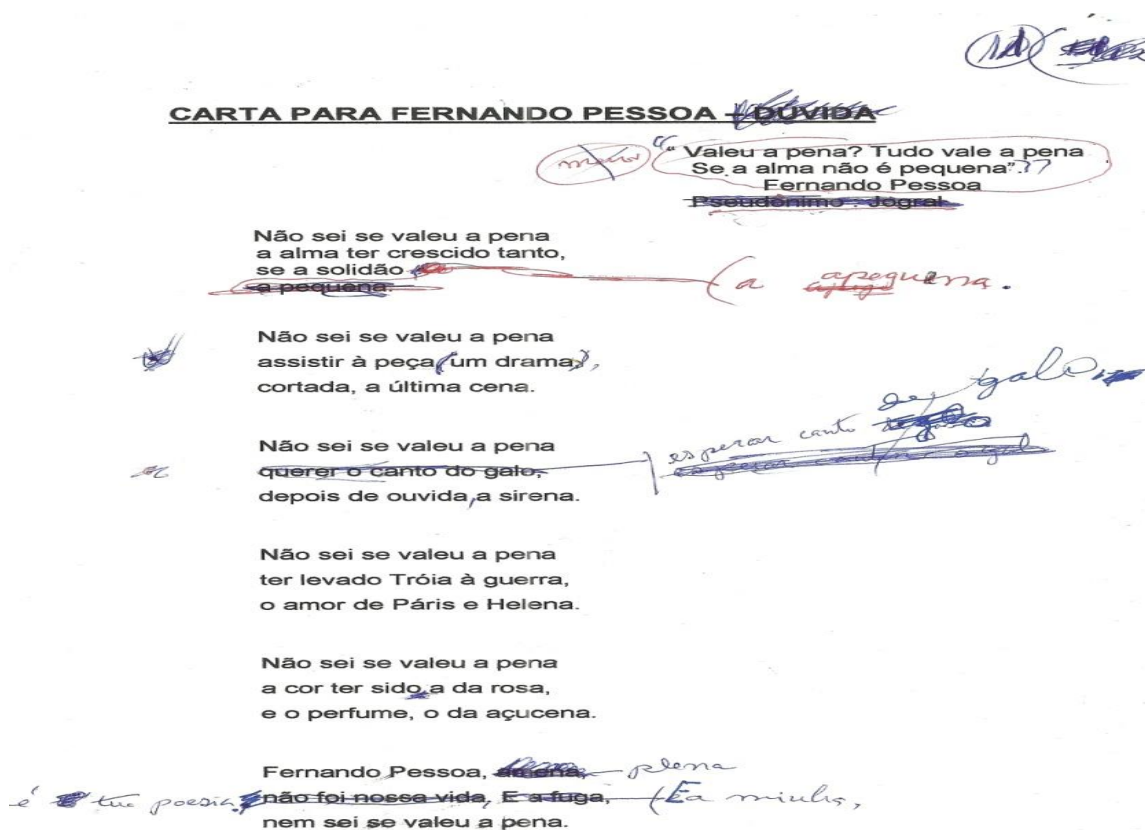 CARTA PARA FERNANDO PESSOA - DÚVIDA
"Valeu a pena? Tudo vale a pena
Se a alma não é pequena".??
Fernando Pessoa
Pseudônimo : Jogral
Não sei se valeu a pena
a alma ter crescido tanto,
se a solidão
a pequena. (a apequena.
Não sei se valeu a pena
assistir à peça (um drama),
cortada, a última cena.
Não sei se valeu a pena
querer o canto do galo, esperar canto de galo
depois de ouvida, a sirena.
Não sei se valeu a pena
ter levado Tróia à guerra,
o amor de Páris e Helena.
Não sei se valeu a pena
a cor ter sido a da rosa,
e o perfume, o da açucena.
Fernando Pessoa, amena, plena
é tua poesia, não foi nossa vida, E a fuga, (E a minha,
nem sei se valeu a pena.